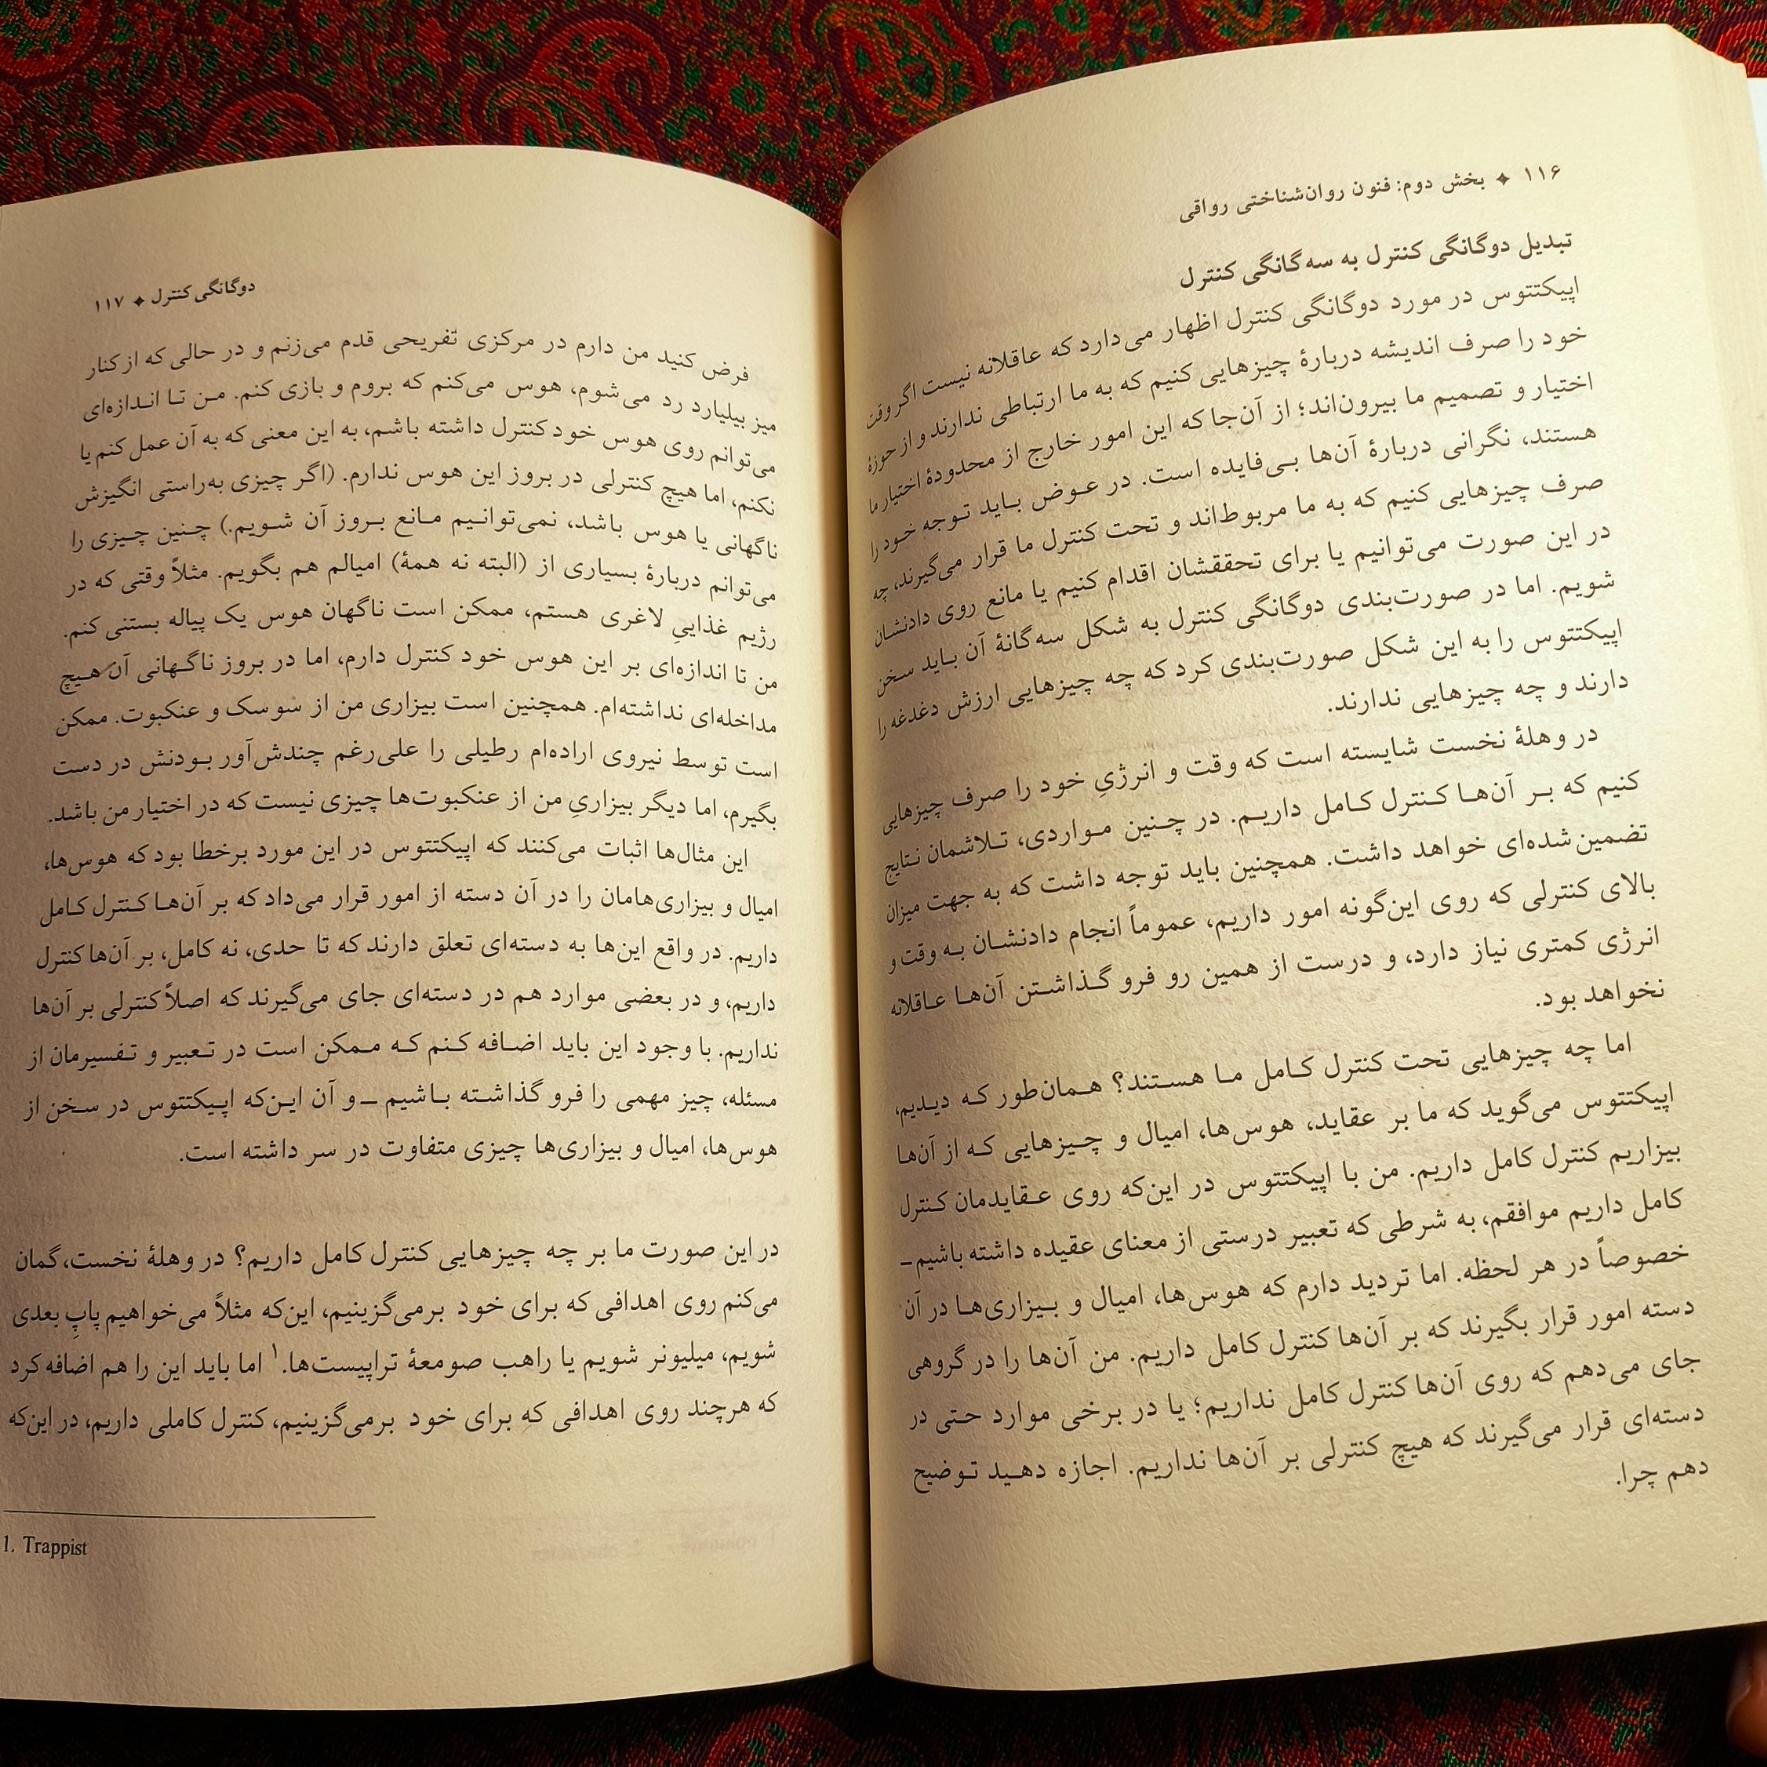 ۱۱۶ ✦ بخش دوم: فنون روان‌شناختی رواقی
تبدیل دوگانگی کنترل به سه‌گانگی کنترل
اپیکتتوس در مورد دوگانگی کنترل اظهار می‌دارد که عاقلانه نیست اگر وقت
خود را صرف اندیشه دربارهٔ چیزهایی کنیم که به ما ارتباطی ندارند و از حوزهٔ
اختیار و تصمیم ما بیرون‌اند؛ از آن‌جا که این امور خارج از محدودهٔ اختیار ما
هستند، نگرانی دربارهٔ آن‌ها بی‌فایده است. در عوض باید توجه خود را
صرف چیزهایی کنیم که به ما مربوط‌اند و تحت کنترل ما قرار می‌گیرند، چه
در این صورت می‌توانیم یا برای تحققشان اقدام کنیم یا مانع روی دادنشان
شویم. اما در صورت‌بندی دوگانگی کنترل به شکل سه‌گانهٔ آن باید سخن
اپیکتتوس را به این شکل صورت‌بندی کرد که چه چیزهایی ارزش دغدغه را
دارند و چه چیزهایی ندارند.
در وهلهٔ نخست شایسته است که وقت و انرژیِ خود را صرف چیزهایی
کنیم که بر آن‌ها کنترل کامل داریم. در چنین مواردی، تلاشمان نتایج
تضمین‌شده‌ای خواهد داشت. همچنین باید توجه داشت که به جهت میزان
بالای کنترلی که روی این‌گونه امور داریم، عموماً انجام دادنشان به وقت و
انرژی کمتری نیاز دارد، و درست از همین رو فرو گذاشتن آن‌ها عاقلانه
نخواهد بود.
اما چه چیزهایی تحت کنترل کامل ما هستند؟ همان‌طور که دیدیم،
اپیکتتوس می‌گوید که ما بر عقاید، هوس‌ها، امیال و چیزهایی که از آن‌ها
بیزاریم کنترل کامل داریم. من با اپیکتتوس در این‌که روی عقایدمان کنترل
کامل داریم موافقم، به شرطی که تعبیر درستی از معنای عقیده داشته باشیم ــ
خصوصاً در هر لحظه. اما تردید دارم که هوس‌ها، امیال و بیزاری‌ها در آن
دسته امور قرار بگیرند که بر آن‌ها کنترل کامل داریم. من آن‌ها را در گروهی
جای می‌دهم که روی آن‌ها کنترل کامل نداریم؛ یا در برخی موارد حتی در
دسته‌ای قرار می‌گیرند که هیچ کنترلی بر آن‌ها نداریم. اجازه دهید توضیح
دهم چرا.
دوگانگی کنترل ✦ ۱۱۷
فرض کنید من دارم در مرکزی تفریحی قدم می‌زنم و در حالی که از کنار
میز بیلیارد رد می‌شوم، هوس می‌کنم که بروم و بازی کنم. من تا اندازه‌ای
می‌توانم روی هوس خود کنترل داشته باشم، به این معنی که به آن عمل کنم یا
نکنم، اما هیچ کنترلی در بروز این هوس ندارم. (اگر چیزی به‌راستی انگیزش
ناگهانی یا هوس باشد، نمی‌توانیم مانع بروز آن شویم.) چنین چیزی را
می‌توانم دربارهٔ بسیاری از (البته نه همهٔ) امیالم هم بگویم. مثلاً وقتی که در
رژیم غذاییِ لاغری هستم، ممکن است ناگهان هوس یک پیاله بستنی کنم.
من تا اندازه‌ای بر این هوس خود کنترل دارم، اما در بروز ناگهانی آن هیچ
مداخله‌ای نداشته‌ام. همچنین است بیزاری من از سوسک و عنکبوت. ممکن
است توسط نیروی اراده‌ام رطیلی را علی‌رغم چندش‌آور بودنش در دست
بگیرم، اما دیگر بیزاریِ من از عنکبوت‌ها چیزی نیست که در اختیار من باشد.
این مثال‌ها اثبات می‌کنند که اپیکتتوس در این مورد برخطا بود که هوس‌ها،
امیال و بیزاری‌هامان را در آن دسته از امور قرار می‌داد که بر آن‌ها کنترل کامل
داریم. در واقع این‌ها به دسته‌ای تعلق دارند که تا حدی، نه کامل، بر آن‌ها کنترل
داریم، و در بعضی موارد هم در دسته‌ای جای می‌گیرند که اصلاً کنترلی بر آن‌ها
نداریم. با وجود این باید اضافه کنم که ممکن است در تعبیر و تفسیرمان از
مسئله، چیز مهمی را فرو گذاشته باشیم ــ و آن این‌که اپیکتتوس در سخن از
هوس‌ها، امیال و بیزاری‌ها چیزی متفاوت در سر داشته است.
در این صورت ما بر چه چیزهایی کنترل کامل داریم؟ در وهلهٔ نخست، گمان
می‌کنم روی اهدافی که برای خود برمی‌گزینیم، این‌که مثلاً می‌خواهیم پاپِ بعدی
شویم، میلیونر شویم یا راهب صومعهٔ تراپیست‌ها.۱ اما باید این را هم اضافه کرد
که هرچند روی اهدافی که برای خود برمی‌گزینیم، کنترل کاملی داریم، در این‌که
1. Trappist